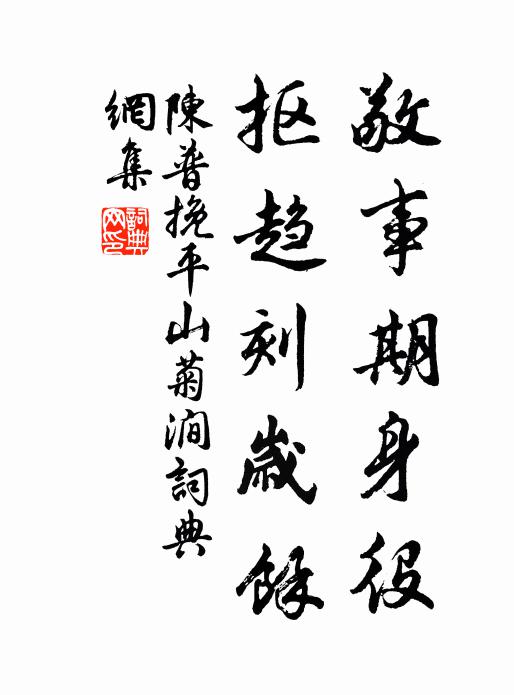 敬事期身役
抠趋刻歲餘
陳普挽平山菊澗詞典
網集
詞典网印